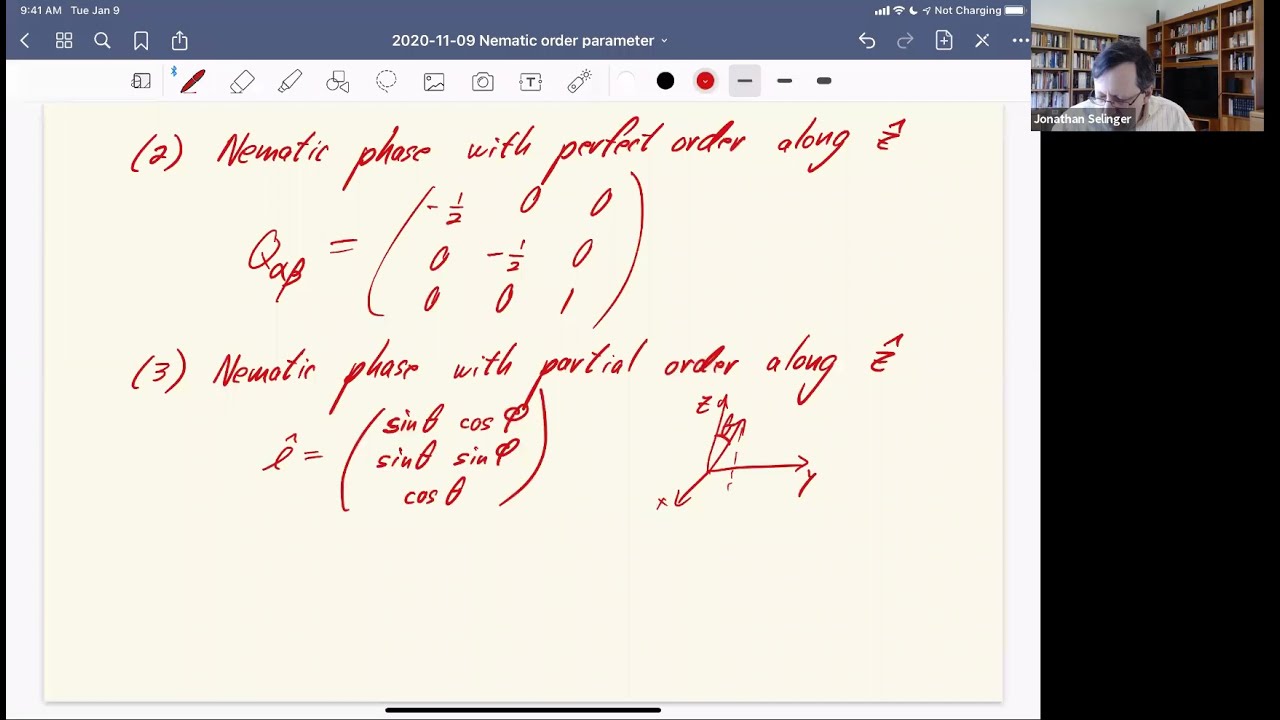 9:41 AM Tue Jan 9
Not Charging
2020-11-09 Nematic order parameter
T
Jonathan Selinger
(2) Nematic phase with perfect order along ẑ
Qαβ = ( -1/2 0 0
0 -1/2 0
0 0 1 )
(3) Nematic phase with partial order along ẑ
ℓ̂ = ( sinθ cosφ
sinθ sinφ
cosθ )
z θ
y
x